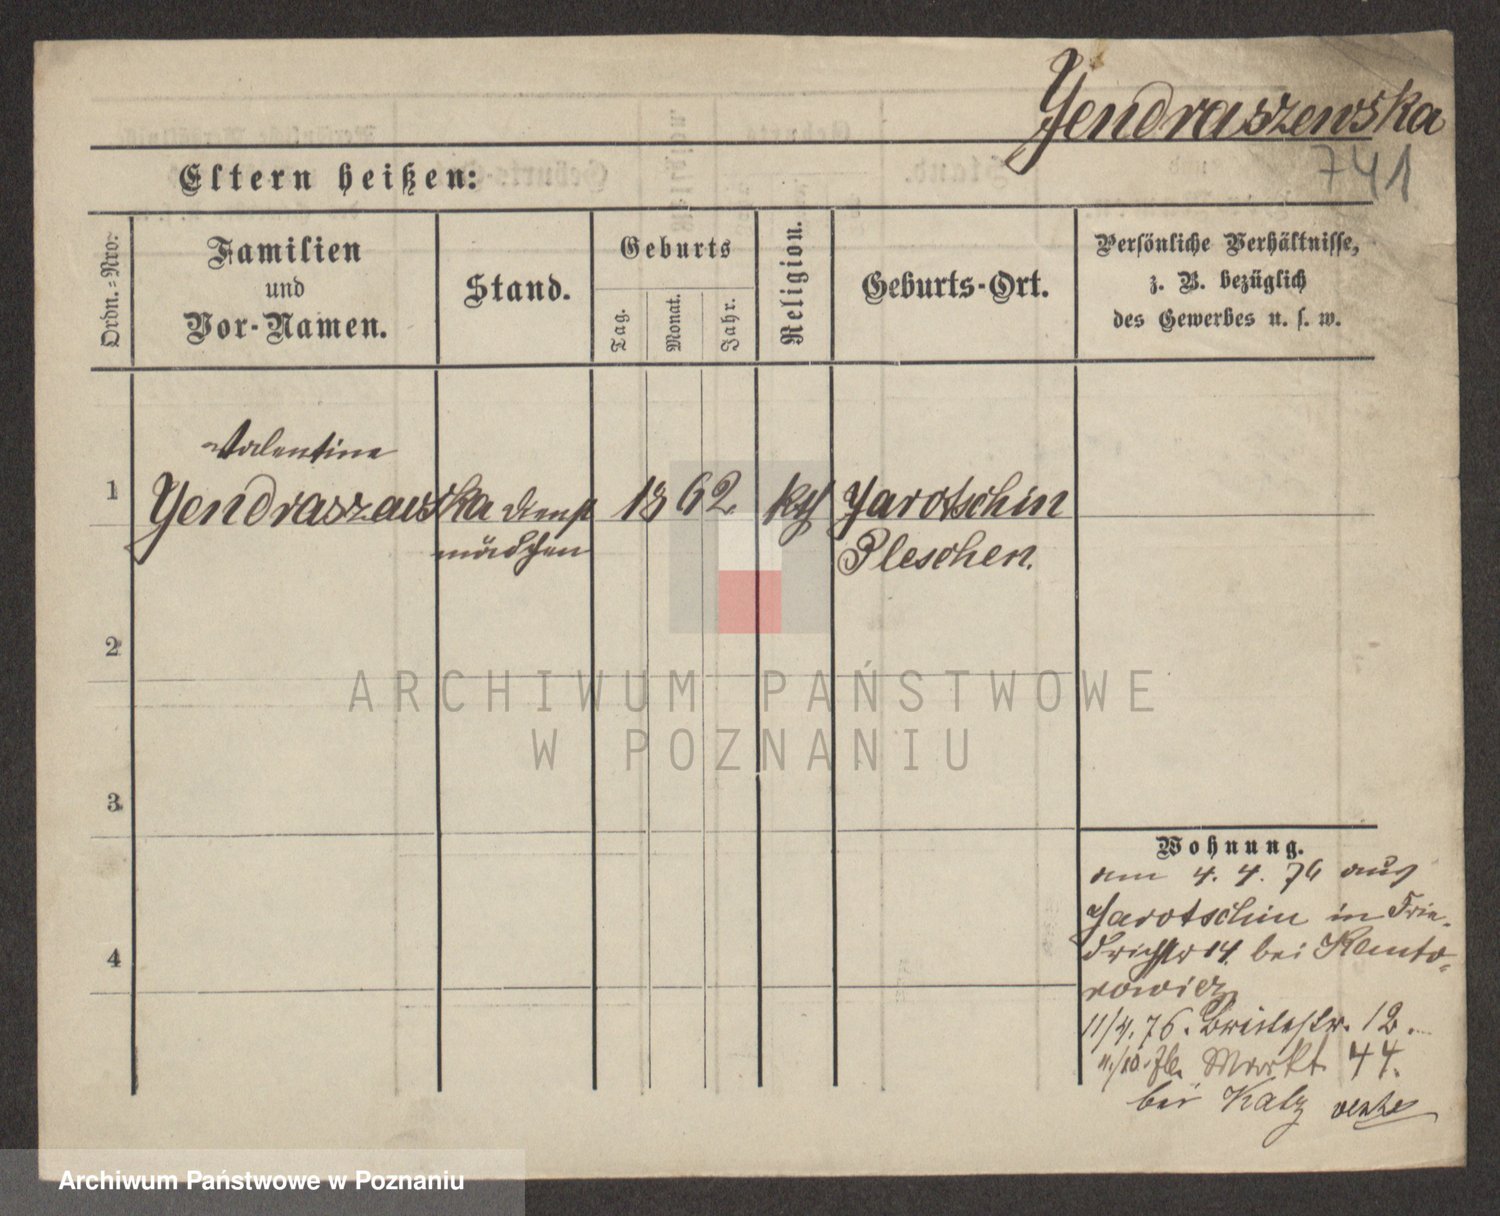 Jendraszewska
741
Eltern heißen:
Ordn.=Nro:
Familien
und
Vor-Namen.
Stand.
Geburts
Tag.
Monat.
Jahr.
Religion.
Geburts-Ort.
Persönliche Verhältnisse,
z. B. bezüglich
des Gewerbes u. s. w.
Valentine
1 Jendraszewska Dienst 1862 kth Jarotschin
mädchen Pleschen.
2
3
4
Wohnung.
am 4. 4. 76 aus
Jarotschin in Frie-
drichstr 14. bei Kanto-
rowicz
11/4. 76. Breitestr. 12.
11./10. 76. Markt 44.
bei Katz
ARCHIWUM PAŃSTWOWE
W POZNANIU
Archiwum Państwowe w Poznaniu